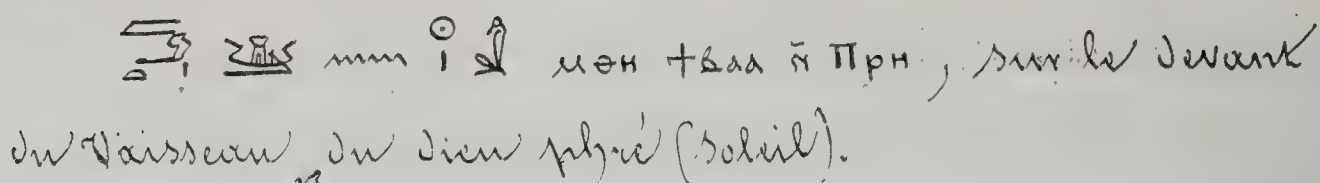 𓐝𓄂𓏏𓏤 𓊞 𓈖 𓇳𓏤 𓀭 ⲙⲑⲏ ϯⲃⲁⲁ ⲛ̄ Ⲡⲣⲏ, sur le devant
du Vaisseau du dieu phré (soleil).